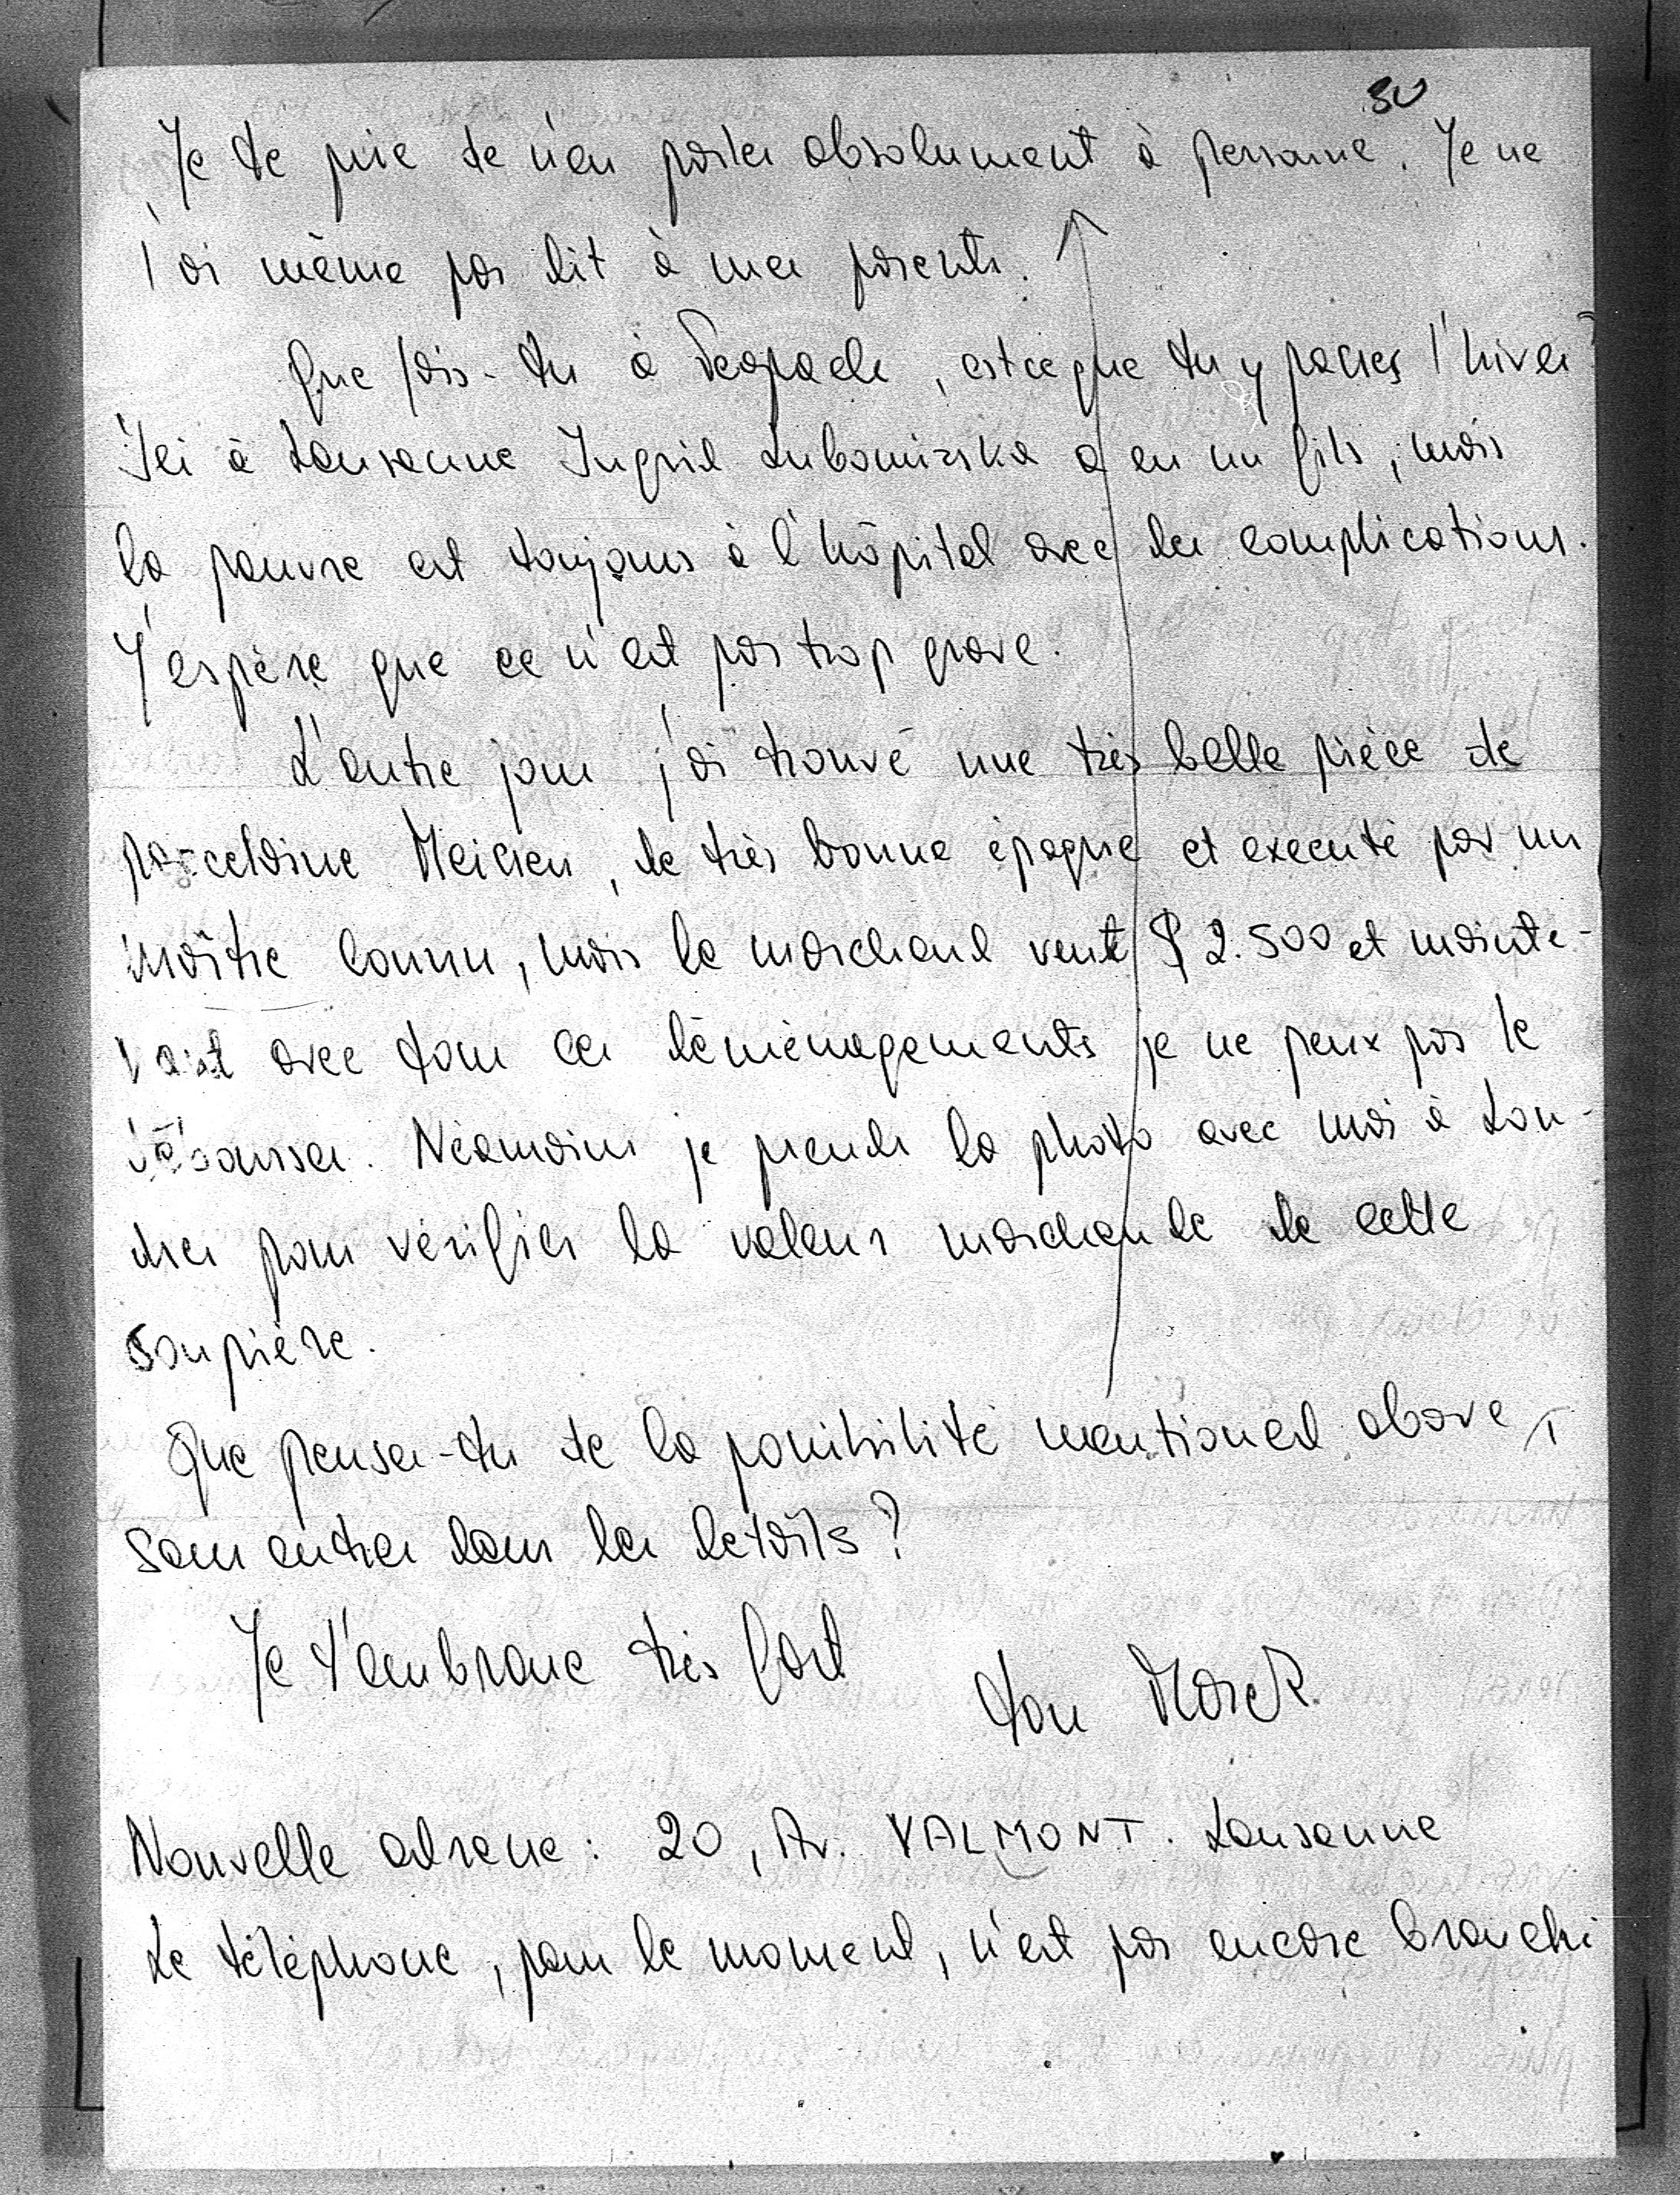 30
Je te prie de n'en parler absolument à personne. Je ne
l'ai même pas dit à mes parents.
Que fais-tu à , est ce que tu y passes l'hiver?
Ici à Lausanne Ingrid Lubomirska a eu un fils, mais
la pauvre est toujours à l'hôpital avec des complications.
J'espère que ce n'est pas trop grave.
L'autre jour j'ai trouvé une très belle pièce de
porcelaine Meissen, de très bonne époque et executé par un
maître connu, mais le marchand veut $ 2.500 et mainte-
nant avec tous ces déménagements je ne peux pas le
débourser. Néamoins je prends la photo avec moi à Lon-
dres pour vérifier la valeur marchande de cette
soupière.
Que penses-tu de la possibilité mentioned above ↑
sans entrer dans les détails?
Je t'embrasse très fort
ton Marek.
Nouvelle adresse: 20, Av. VALMONT. Lausanne
Le téléphone, pour le moment, n'est pas encore branché